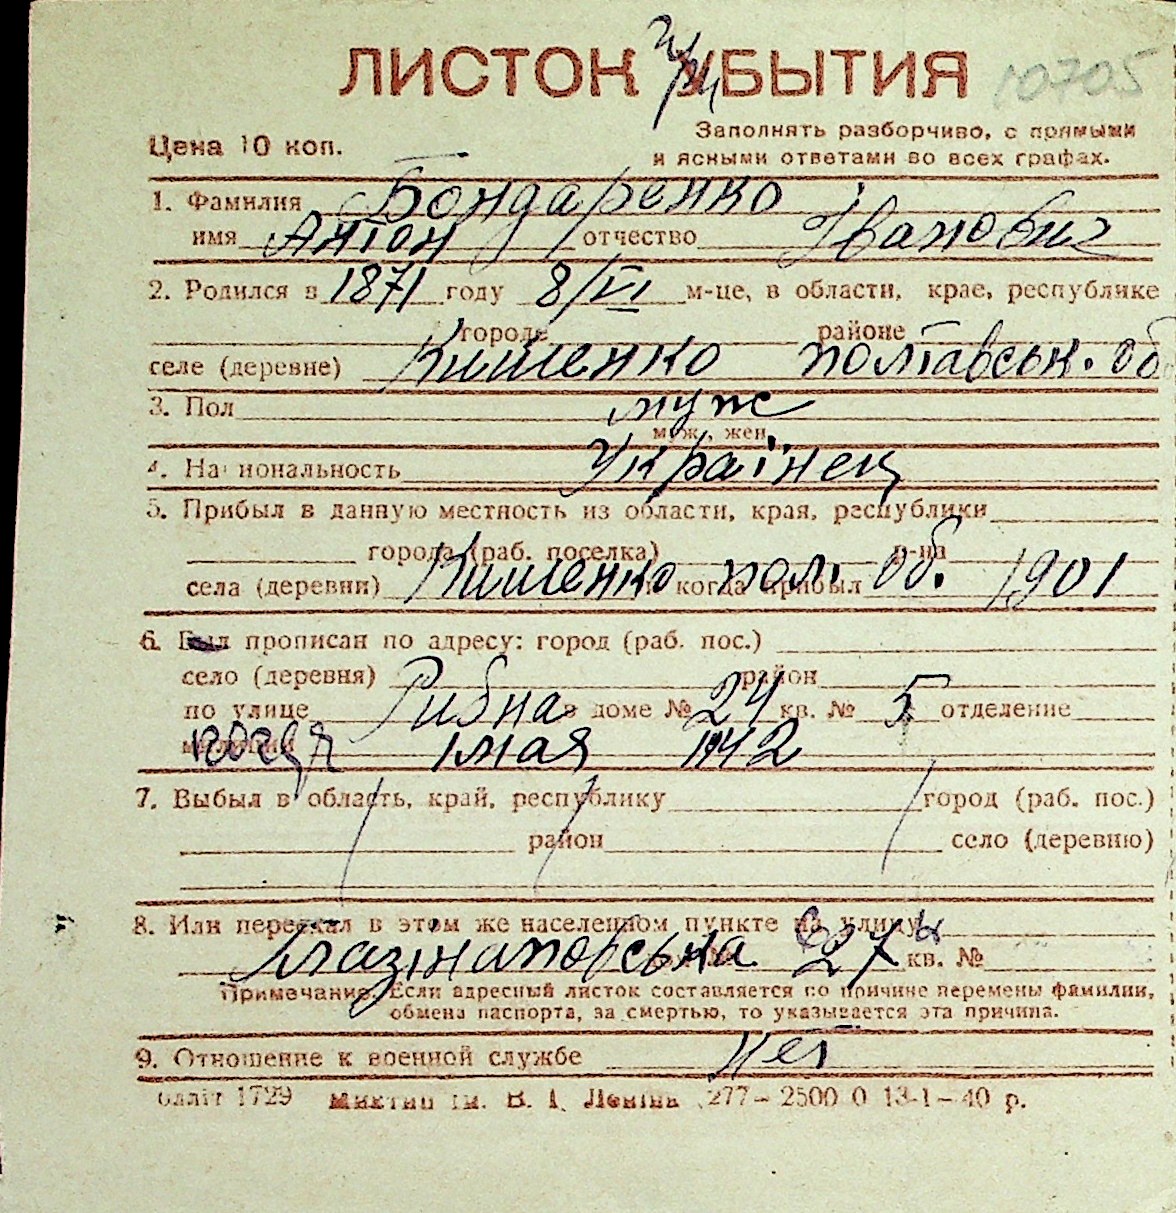 ЛИСТОК УБЫТИЯ 10705
Цена 10 коп.
Заполнять разборчиво, с прямыми
и ясными ответами во всех графах.
1. Фамилия Бондаренко
имя Антон отчество Іванович
2. Родился в 1871 году 8/VI м-це, в области, крае, республике
городе районе
селе (деревне) Кишенко полтавськ. об
3. Пол муж
муж., жен.
4. Национальность Українец
5. Прибыл в данную местность из области, края, республики
города (раб. поселка) р-на
села (деревни) Кишенко пол. об. и когда прибыл 1901
6. Был прописан по адресу: город (раб. пос.)
село (деревня) район
по улице Рибна в доме № 24 кв. № 5 отделение
милиции когда 1 мая 1942
7. Выбыл в область, край, республику город (раб. пос.)
район село (деревню)
8. Или переехал в этом же населенном пункте на улицу
27 кв. №
Примечание. Если адресный листок составляется по причине перемены фамилии,
обмена паспорта, за смертью, то указывается эта причина.
9. Отношение к военной службе Нет
обліт 1729 ім. В. І. Леніна 277 — 2500 0 13-1—40 р.